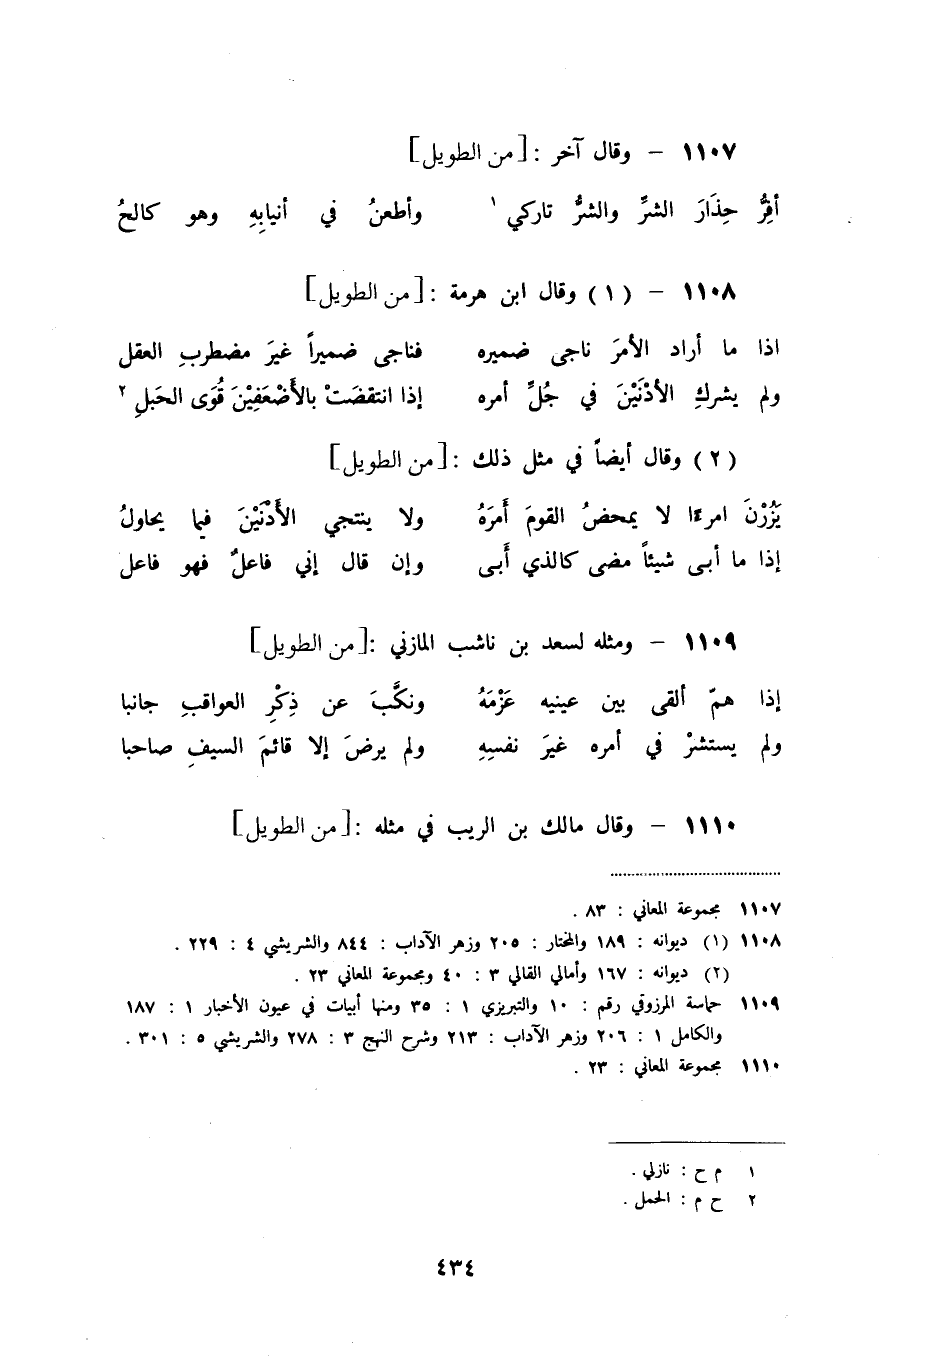 ١١٠٧ – وقال آخر : [من الطويل]
أفِرُّ حِذَارَ الشرِّ والشرُّ تاركي ١ وأطعنُ في أنيابِهِ وهو كالحُ
١١٠٨ – (١) وقال ابن هرمة : [من الطويل]
اذا ما أراد الأمرَ ناجى ضميره فناجى ضميراً غيرَ مضطربِ العقل
ولم يشركِ الأدْنَيْنَ في جُلِّ أمره إذا انتقضَتْ بالأَضْعَفِيْنَ قُوَى الحَبلِ ٢
(٢) وقال أيضاً في مثل ذلك : [من الطويل]
يَزُرْنَ امرءًا لا يمحضُ القومَ أَمرَهُ ولا ينتجي الأَدْنَيْنَ فيما يحاولُ
إذا ما أبى شيئاً مضى كالذي أَبى وإن قال إني فاعلٌ فهو فاعل
١١٠٩ – ومثله لسعد بن ناشب المازني : [من الطويل]
إذا همّ ألقى بين عينيه عَزْمَهُ ونكَّبَ عن ذِكْرِ العواقبِ جانبا
ولم يستشرْ في أمره غيرَ نفسِهِ ولم يرضَ إلا قائمَ السيفِ صاحبا
١١١٠ – وقال مالك بن الريب في مثله : [من الطويل]
١١٠٧ مجموعة المعاني : ٨٣ .
١١٠٨ (١) ديوانه : ١٨٩ والمختار : ٢٠٥ وزهر الآداب : ٨٤٤ والشريشي ٤ : ٢٢٩ .
(٢) ديوانه : ١٦٧ وأمالي القالي ٣ : ٤٠ ومجموعة المعاني ٢٣ .
١١٠٩ حماسة المرزوقي رقم : ١٠ والتبريزي ١ : ٣٥ ومنها أبيات في عيون الأخبار ١ : ١٨٧
والكامل ١ : ٢٠٦ وزهر الآداب : ٢١٣ وشرح النهج ٣ : ٢٧٨ والشريشي ٥ : ٣٠١ .
١١١٠ مجموعة المعاني : ٢٣ .
١ م ح : نازلي .
٢ ح م : الحمل .
٤٣٤